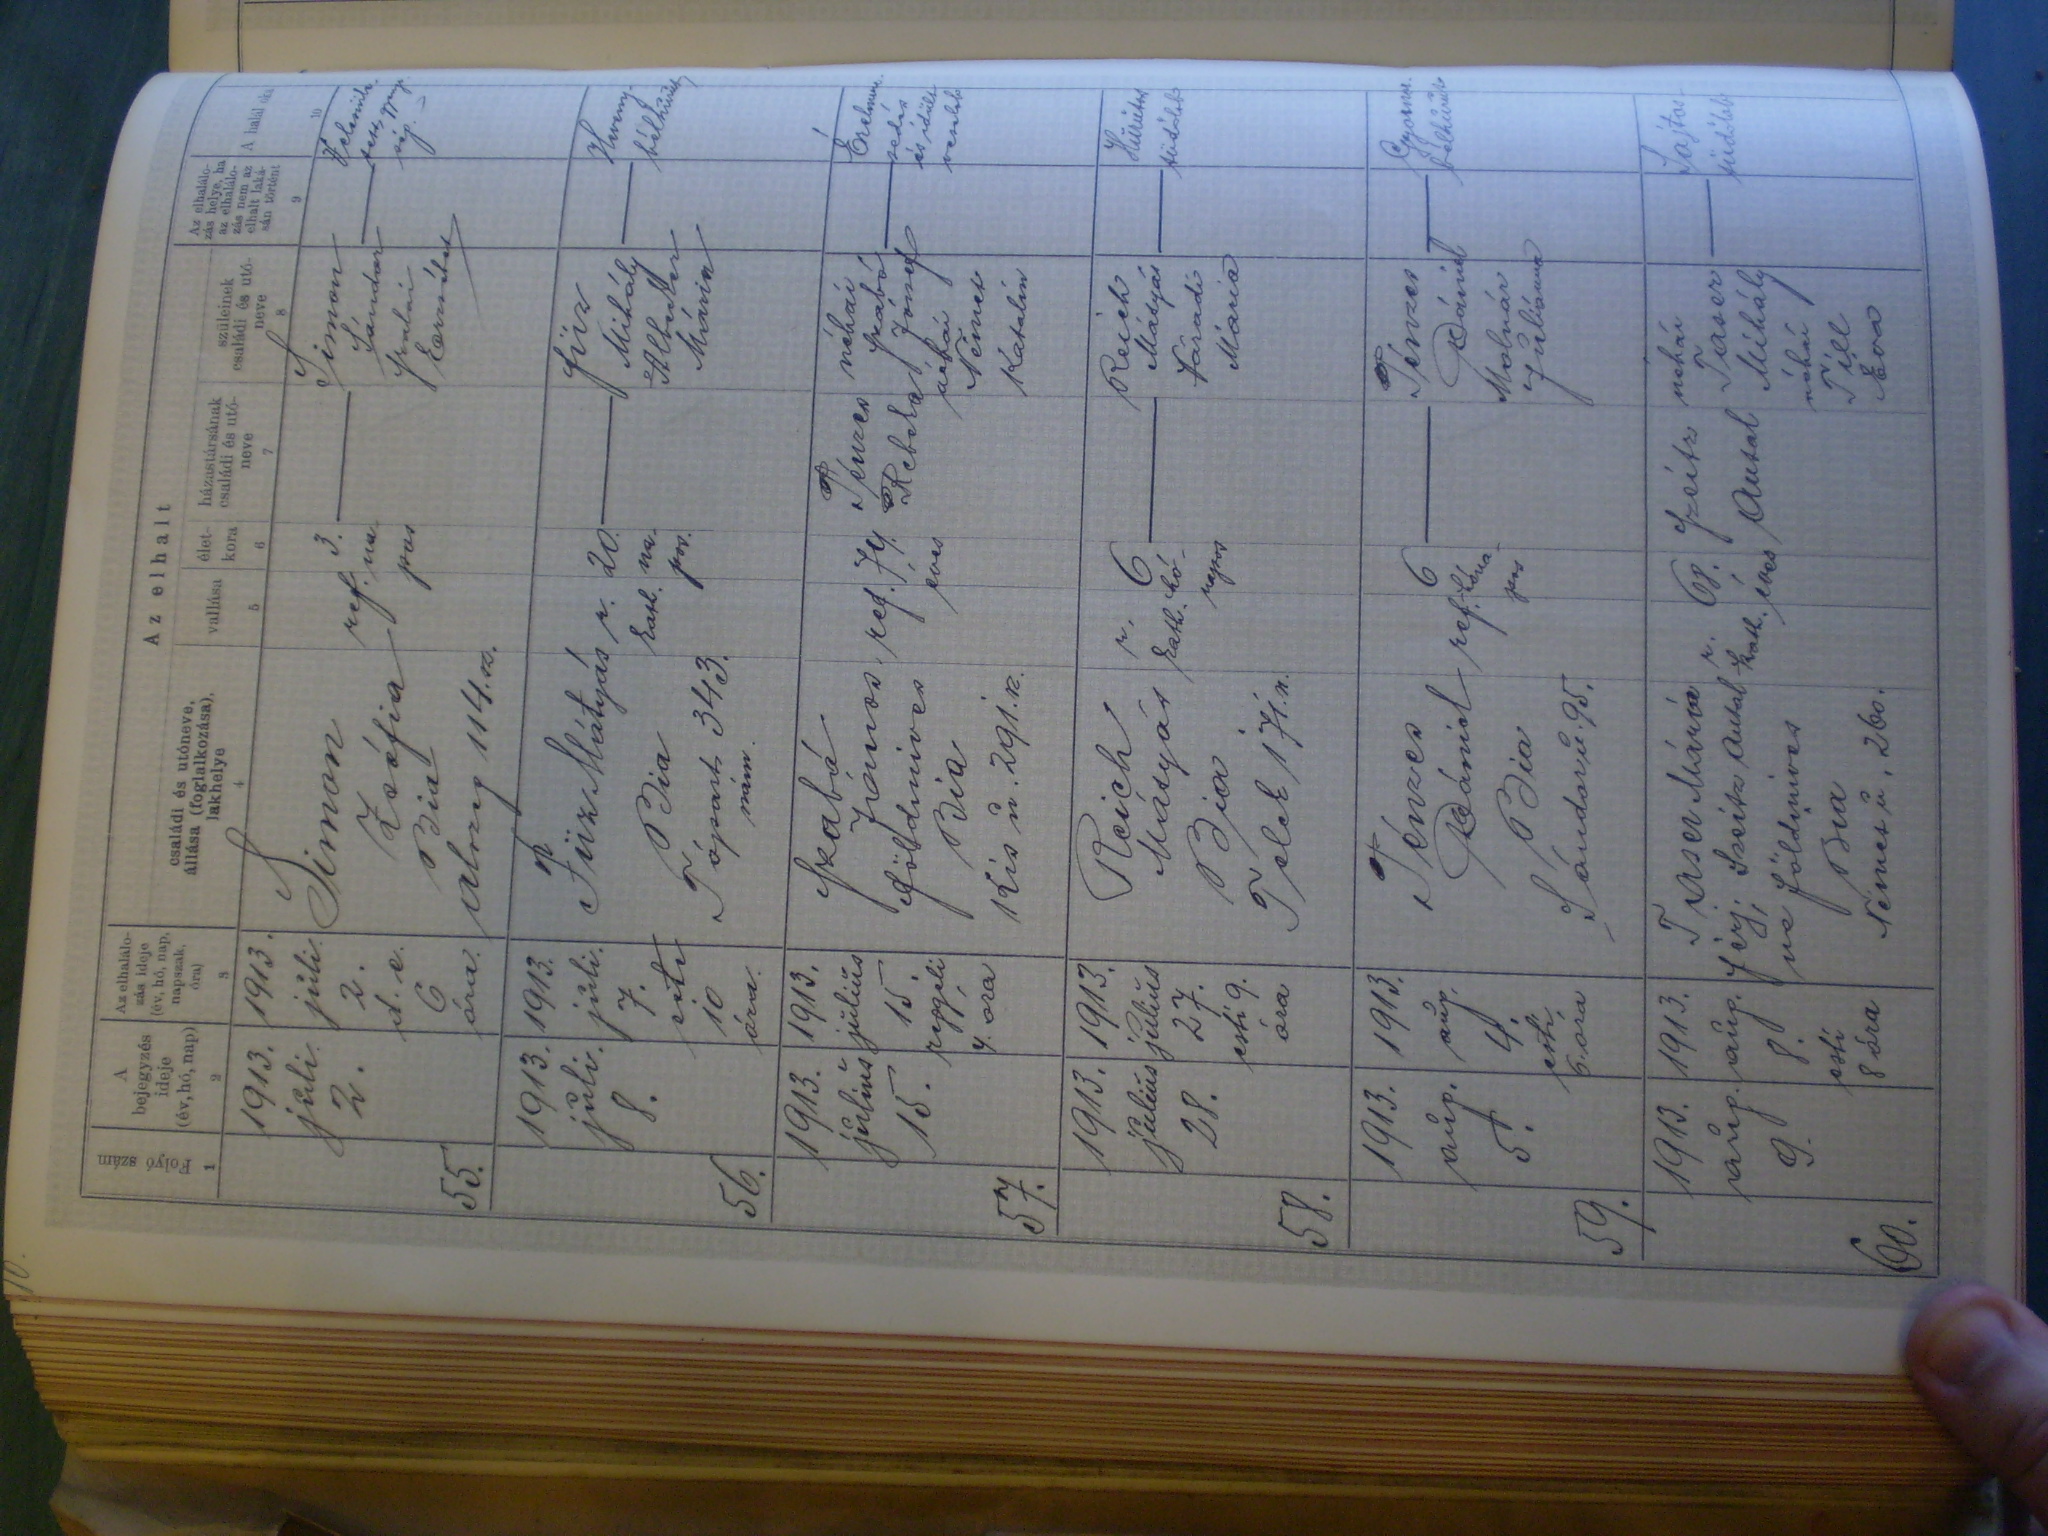 Az elhalt
Folyó szám
A bejegyzés ideje (év, hó, nap)
Az elhalálo-
zás ideje
(év, hó, nap,
napszak,
óra)
családi és utóneve,
állása (foglalkozása),
lakhelye
vallása
élet-
kora
házastársának
családi és utó-
neve
szüleinek
családi és utó-
neve
Az elhalálo-
zás helye, ha
az elhalálo-
zás nem az
elhalt laká-
sán történt
A halál oka
1 2 3 4 5 6 7 8 9 10
55.
1913.
júli.
2.
1913.
júli.
2.
d. e.
6
óra.
Simon
Zsófia
Bia
114.
ref.
3.
na
pos
Simon
Sándor
56.
1913.
júli.
8.
1913.
júli.
7.
este
10
óra.
Füzi Mátyás
Bia
Tópart 343.
szám.
r.
kath.
20.
na-
pos.
Füzi
Mihály
Mária
bélhurut
57.
1913.
július
15.
1913.
július
15.
reggeli
4. óra
Szabó
János
földmives
Bia
Kis u. 291. sz.
ref.
74.
éves
Pénzes
Rebeka
néhai
Szabó
József
néhai
Németh
Katalin
58.
1913.
július
28.
1913.
július
27.
esti 9.
óra
Reich
Mátyás
Bia
Telek 171. sz.
r.
kath.
6
hó-
napos
Reich
Mátyás
Váradi
Mária
Hurutos
tüdőlob
59.
1913.
aug.
5.
1913.
aug.
4.
esti
6. óra
Pénzes
Dániel
Bia
Sándor u. 95.
ref.
6
hóna-
pos
Pénzes
Dániel
Molnár
Juliánna
bélhurut
60.
1913.
aug.
9.
1913.
aug.
8.
esti
8 óra
Traser Mária
férj. Szeitz Antal-
né földmives
Bia
Német u. 260.
r.
kath.
68.
éves
Szeitz
Antal
néhai
Traser
Mihály
néhai
Till
Éva
tüdőlob